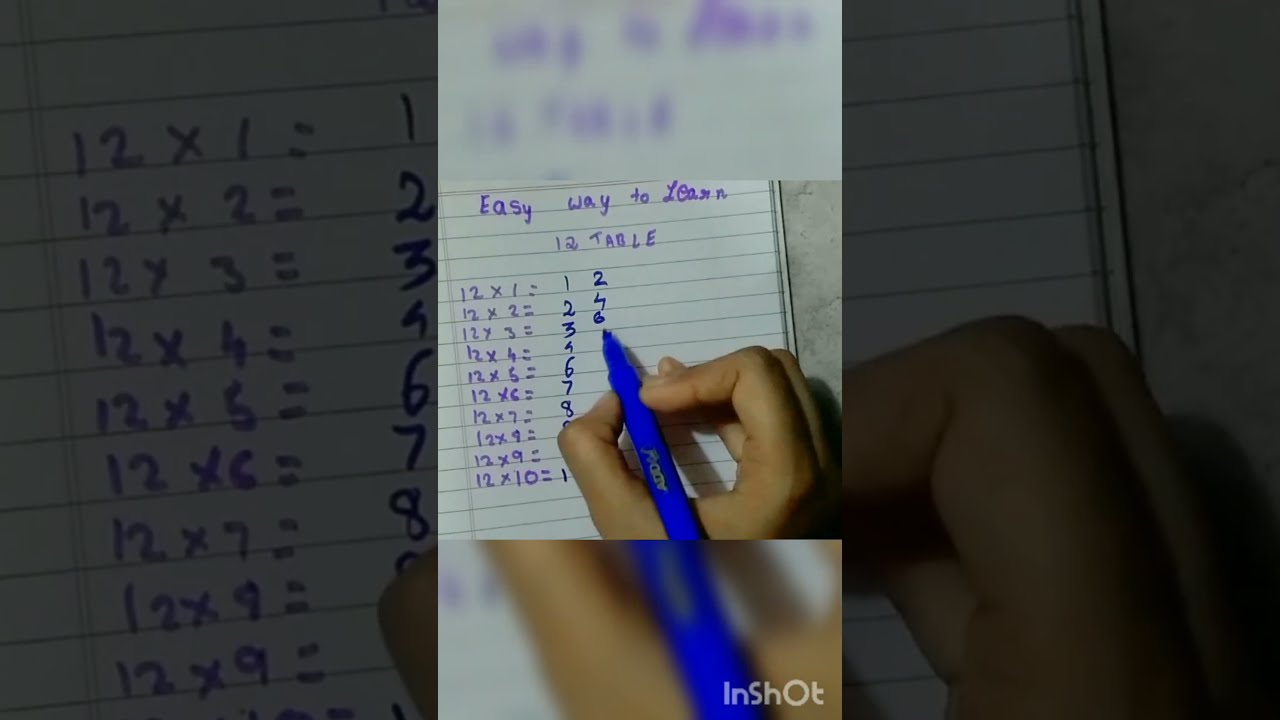 Easy way to Learn
12 TABLE
12 x 1 = 1 2
12 x 2 = 2 4
12 x 3 = 3 6
12 x 4 = 4
12 x 5 = 6
12 x 6 = 7
12 x 7 = 8
12 x 9 =
12 x 9 =
12 x 10 = 1
InShOt